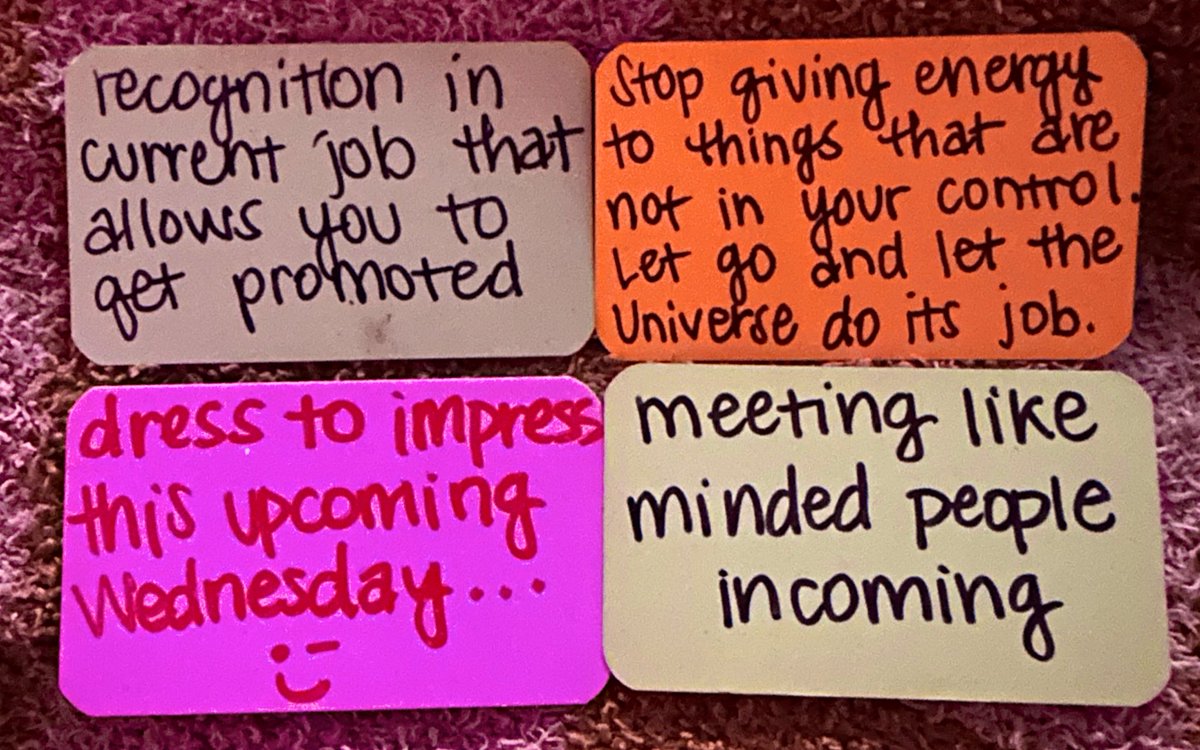 recognition in
current job that
allows you to
get promoted
Stop giving energy
to things that are
not in your control.
Let go and let the
Universe do its job.
dress to impress
this upcoming
Wednesday...
meeting like
minded people
incoming